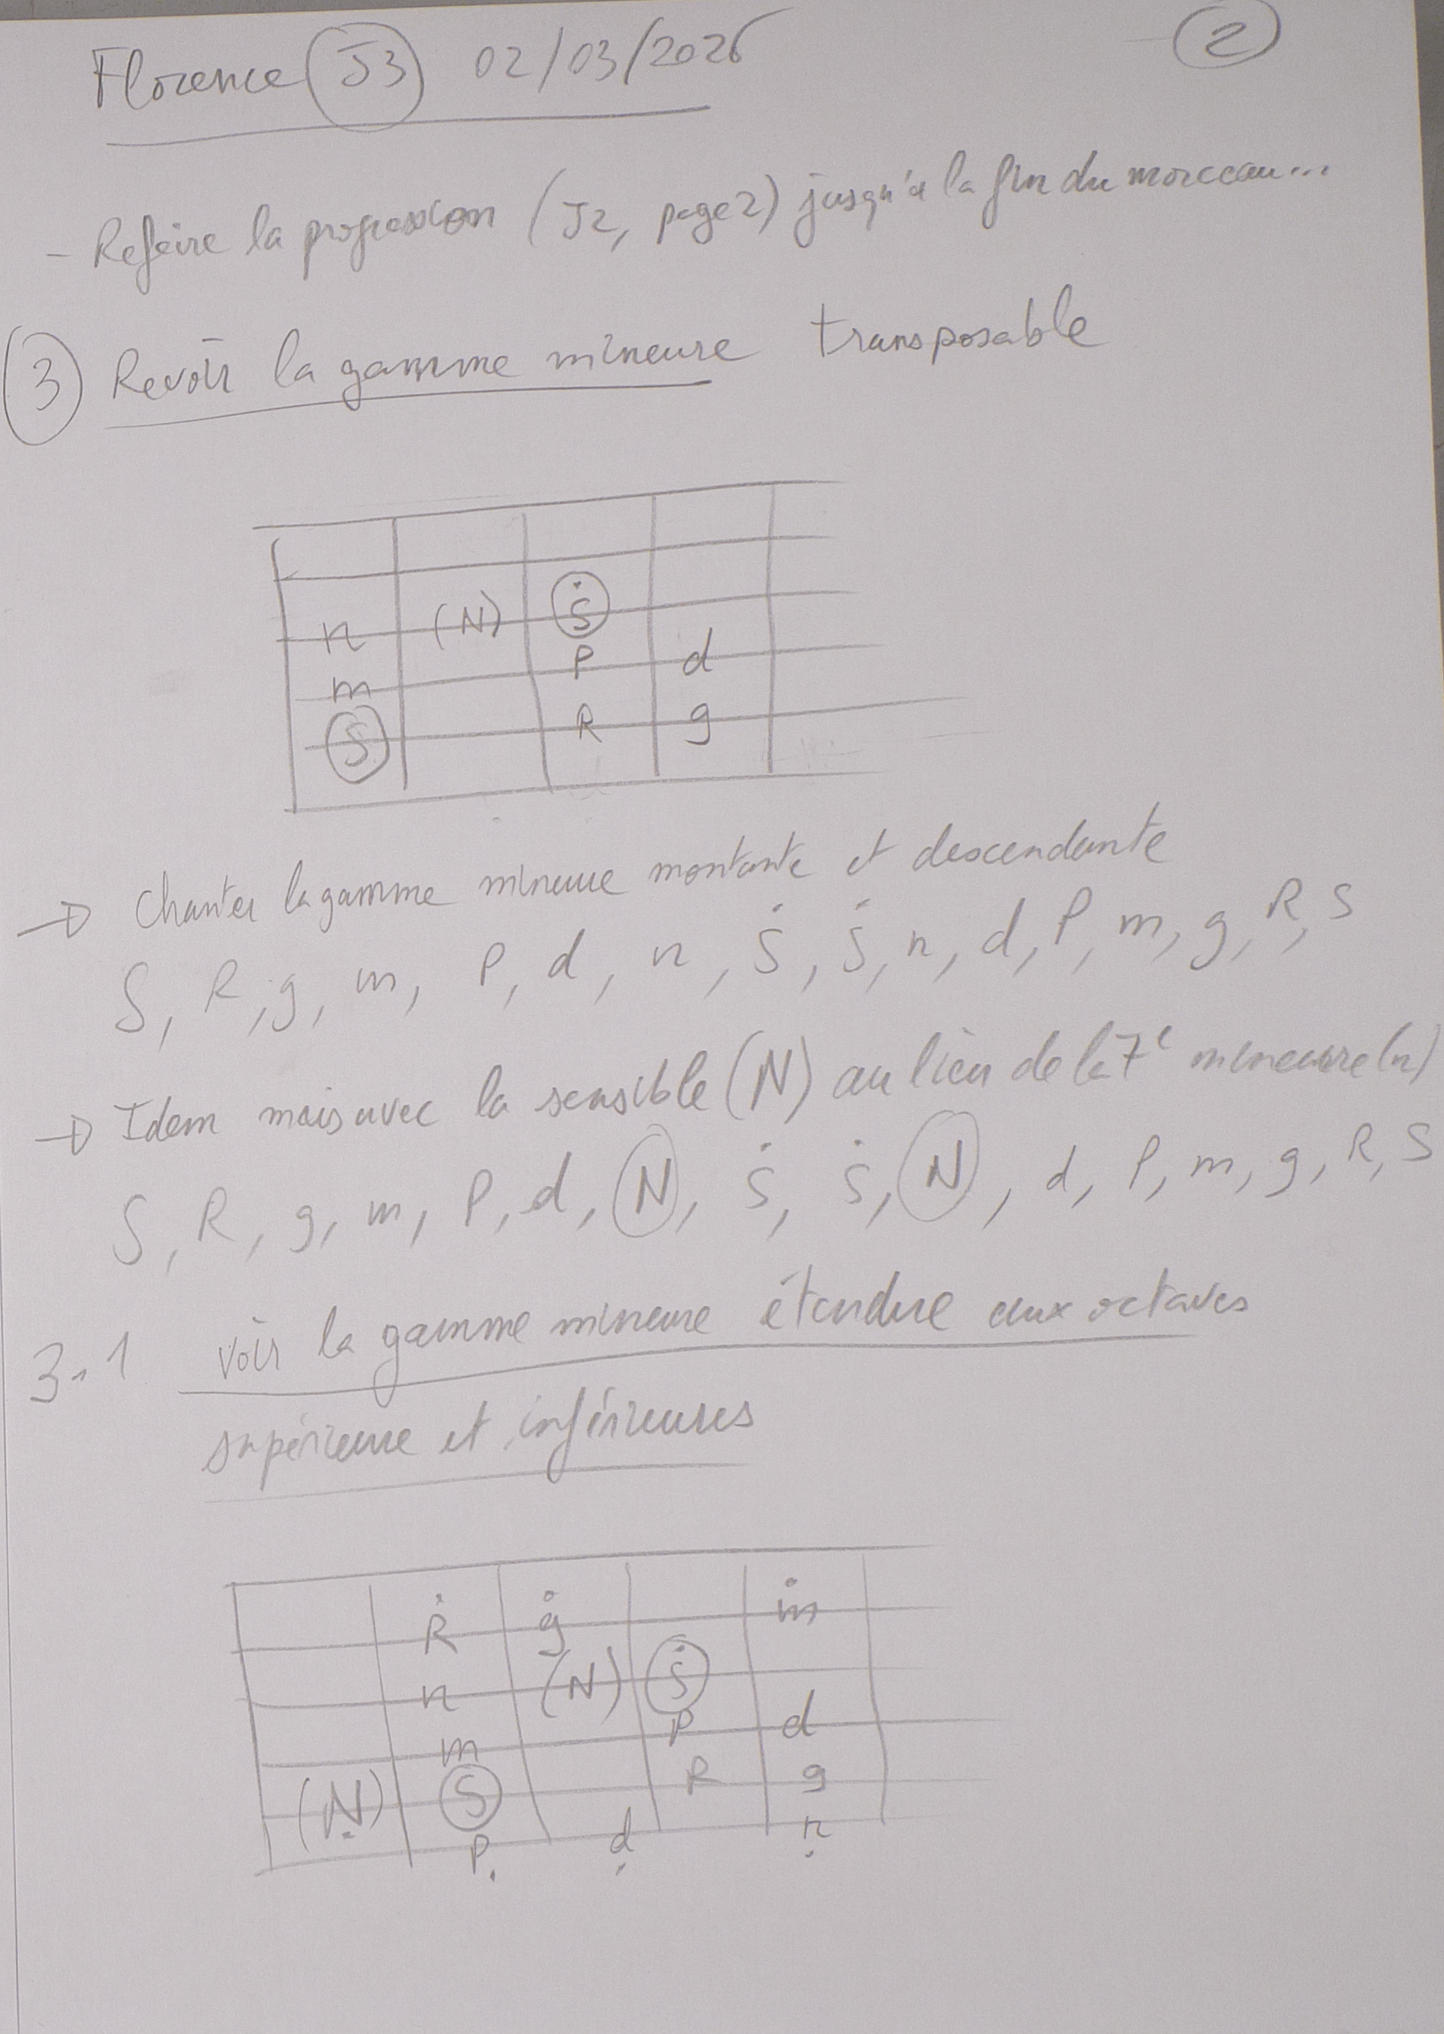 Florence J3 02/03/2026
2
- Refaire la progression (J2, page 2) jusqu'à la fin du morceau...
3 Revoir la gamme mineure transposable
n (N) Ṡ
P d
m
R g
S
→ Chanter la gamme mineure montante et descendante
S, R, g, m, P, d, n, Ṡ, Ṡ, n, d, P, m, g, R, S
→ Idem mais avec la sensible (N) au lieu de la 7e mineure (n)
S, R, g, m, P, d, N, Ṡ, Ṡ, N, d, P, m, g, R, S
3.1 voir la gamme mineure étendue aux octaves
supérieure et inférieures
Ṙ ġ ṁ
n (N) Ṡ
P d
m
R g
(Ṇ) S
P. ḍ ṇ